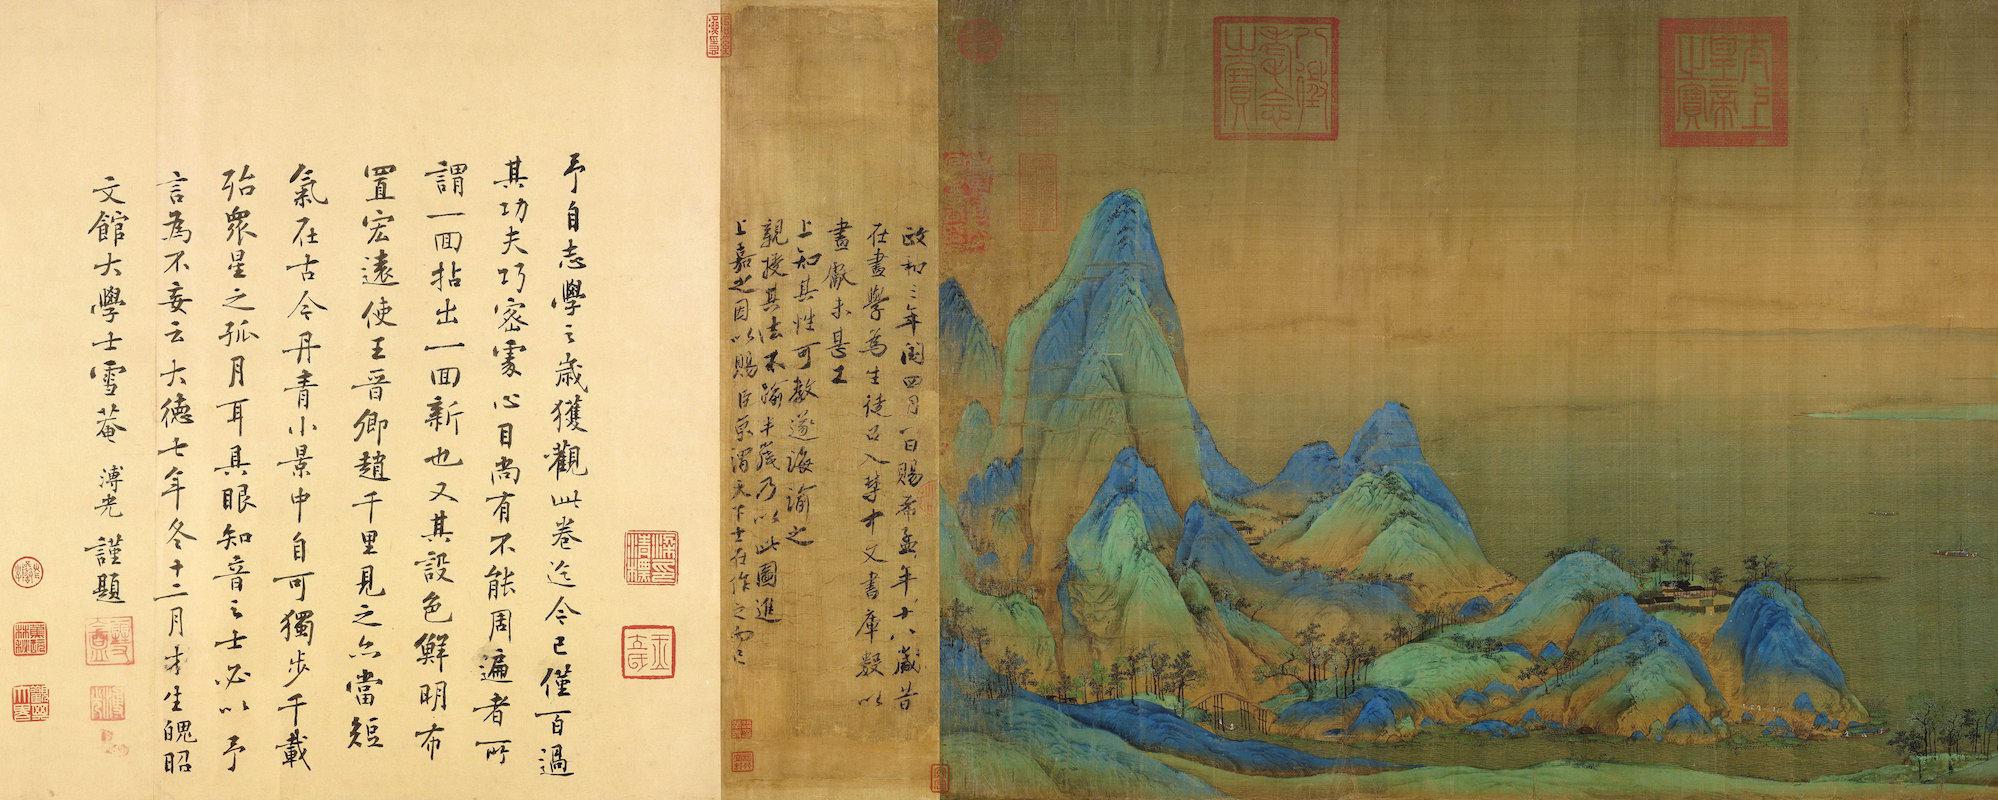 八徵耄念之寶
太上皇帝之寶
政和三年閏四月一日賜希孟年十八歲昔
在畫學為生徒召入禁中文書庫數以
畫獻未甚工
上知其性可教遂誨諭之
親授其法不踰半歲乃以此圖進
上嘉之因以賜臣京謂天下士在作之而已
予自志學之歲獲觀此卷迄今已僅百過
其功夫巧密處心目尚有不能周遍者所
謂一回拈出一回新也又其設色鮮明布
置宏遠使王晉卿趙千里見之亦當短
氣在古今丹青小景中自可獨步千載
殆眾星之孤月耳具眼知音之士必以予
言為不妄云大德七年冬十二月才生魄昭
文館大學士雪菴溥光謹題